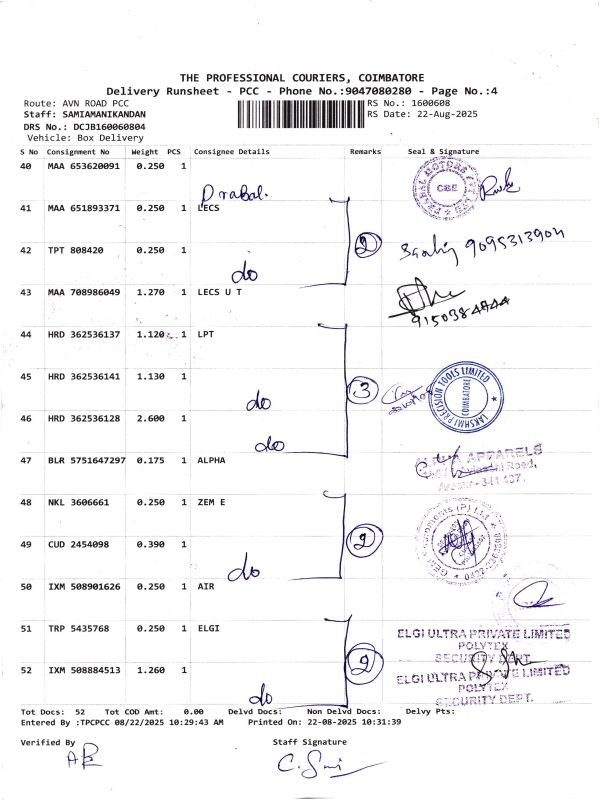 THE PROFESSIONAL COURIERS, COIMBATORE
Delivery Runsheet - PCC - Phone No.:9047080280 - Page No.:4
Route: AVN ROAD PCC RS No.: 1600608
Staff: SAMIAMANIKANDAN RS Date: 22-Aug-2025
DRS No.: DCJB160060804
Vehicle: Box Delivery
S No Consignment No Weight PCS Consignee Details Remarks Seal & Signature
40 MAA 653620091 0.250 1
Prabal. PRABAL MOTORS PVT LTD CBE
41 MAA 651893371 0.250 1 LECS
2 9095313904
42 TPT 808420 0.250 1
do
43 MAA 708986049 1.270 1 LECS U T
9150384844
44 HRD 362536137 1.120 1 LPT
45 HRD 362536141 1.130 1
do 3 LAKSHMI PRECISION TOOLS LIMITED COIMBATORE
46 HRD 362536128 2.600 1
do
47 BLR 5751647297 0.175 1 ALPHA
APPARELS
Road,
48 NKL 3606661 0.250 1 ZEM E
49 CUD 2454098 0.390 1
2
do
50 IXM 508901626 0.250 1 AIR
51 TRP 5435768 0.250 1 ELGI
ELGI ULTRA PRIVATE LIMITED
POLYTEX
SECURITY DEPT.
52 IXM 508884513 1.260 1
2
ELGI ULTRA PRIVATE LIMITED
POLYTEX
SECURITY DEPT.
do
Tot Docs: 52 Tot COD Amt: 0.00 Delvd Docs: Non Delvd Docs: Delvy Pts:
Entered By :TPCPCC 08/22/2025 10:29:43 AM Printed On: 22-08-2025 10:31:39
Verified By Staff Signature